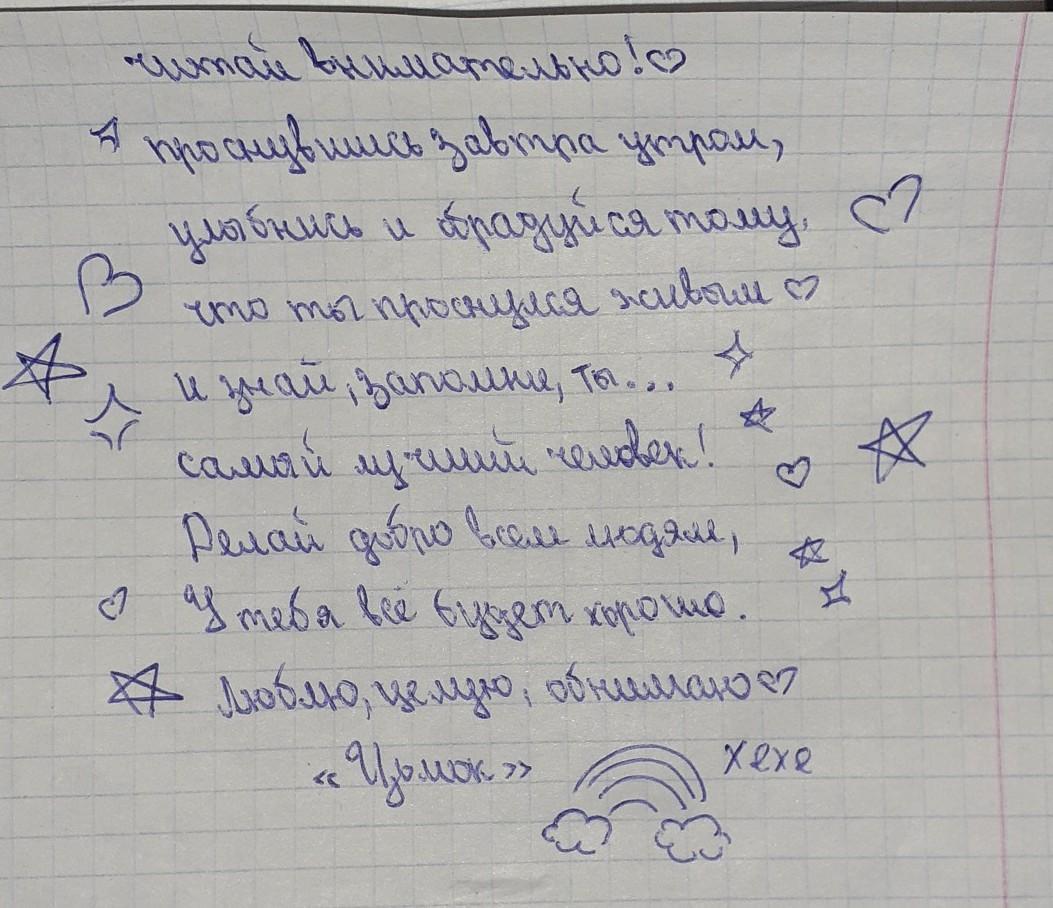 читай внимательно!
проснувшись завтра утром,
улыбнись и обрадуйся тому,
что ты проснулся живым
и знай, запомни, ты...
самый лучший человек!
Делай добро всем людям,
У тебя всё будет хорошо.
Люблю, целую, обнимаю
«Цьмок» хехе